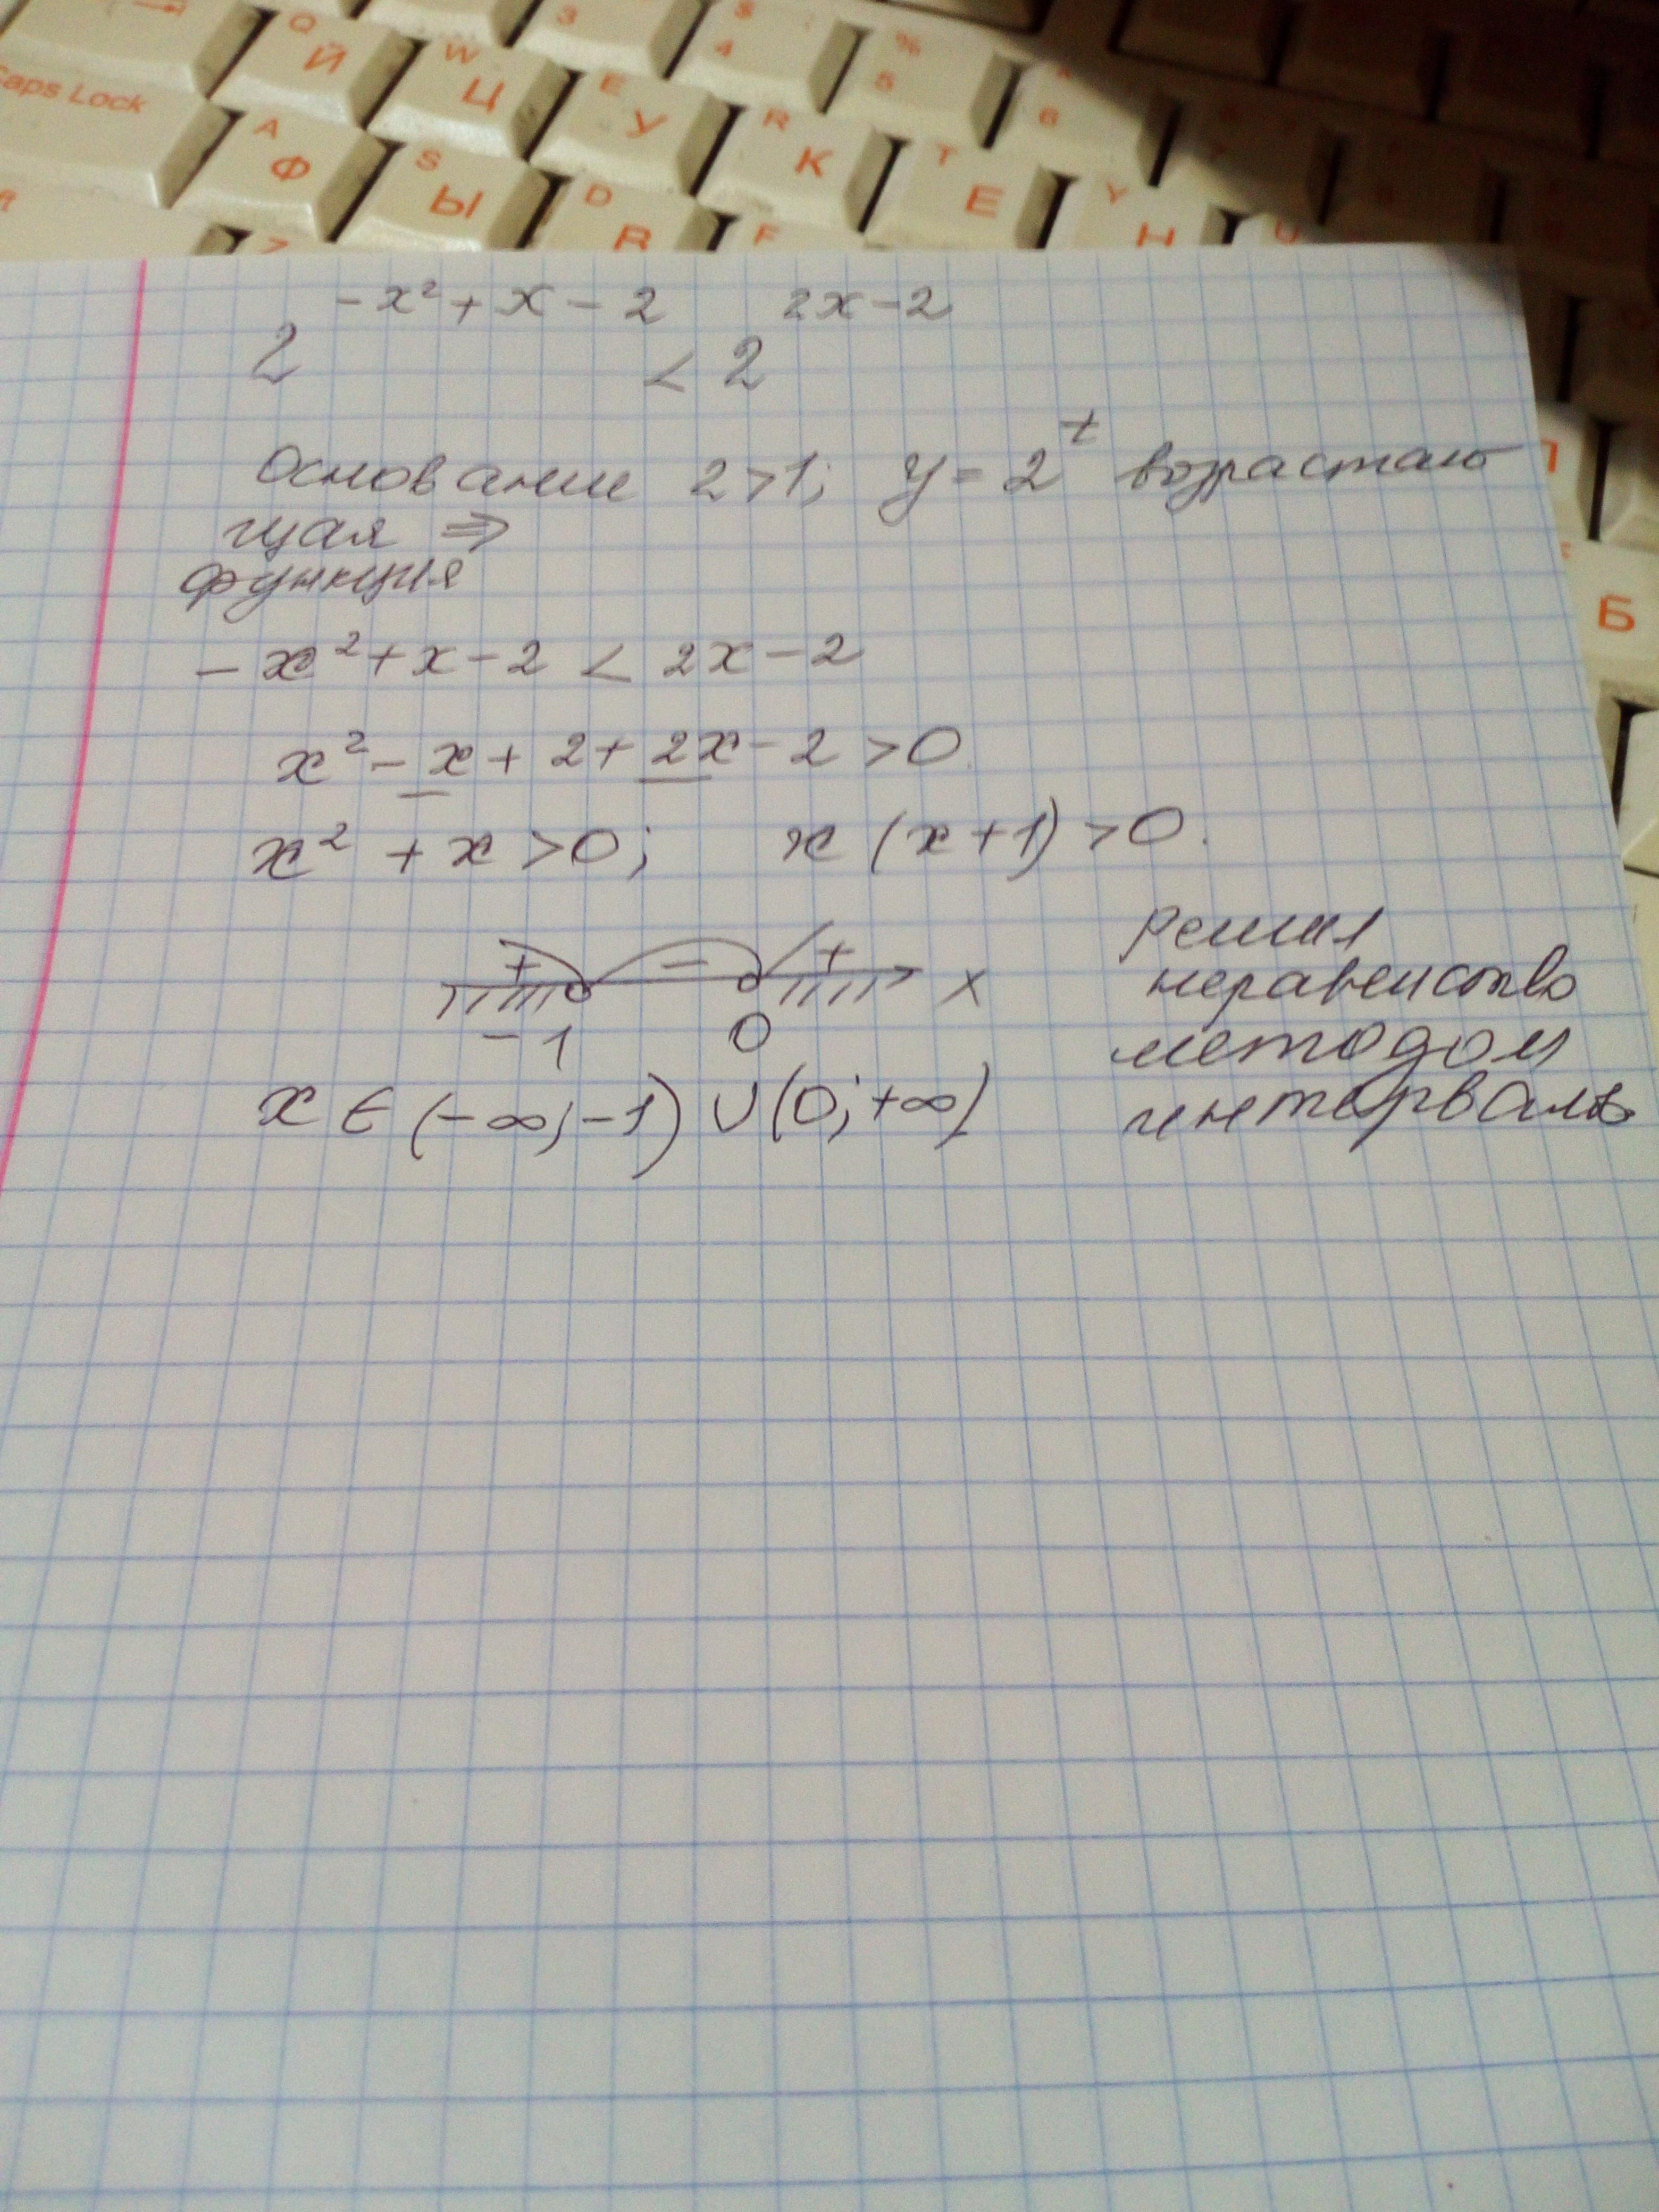 Q Й W Ц E У 3 $ 4 % 5 6
Caps Lock A Ф S Ы D R К T Е Y Н U
F
Б
2^{-x²+x-2} < 2^{2x-2}
Основание 2>1; y = 2^t возрастаю
щая ⇒
функция
-x²+x-2 < 2x-2
x²-x+2+2x-2>0
x²+x>0; x(x+1)>0.
+ - + x
-1 0
x ∈ (-∞;-1)∪(0;+∞)
Решил
неравенство
методом
интервалов